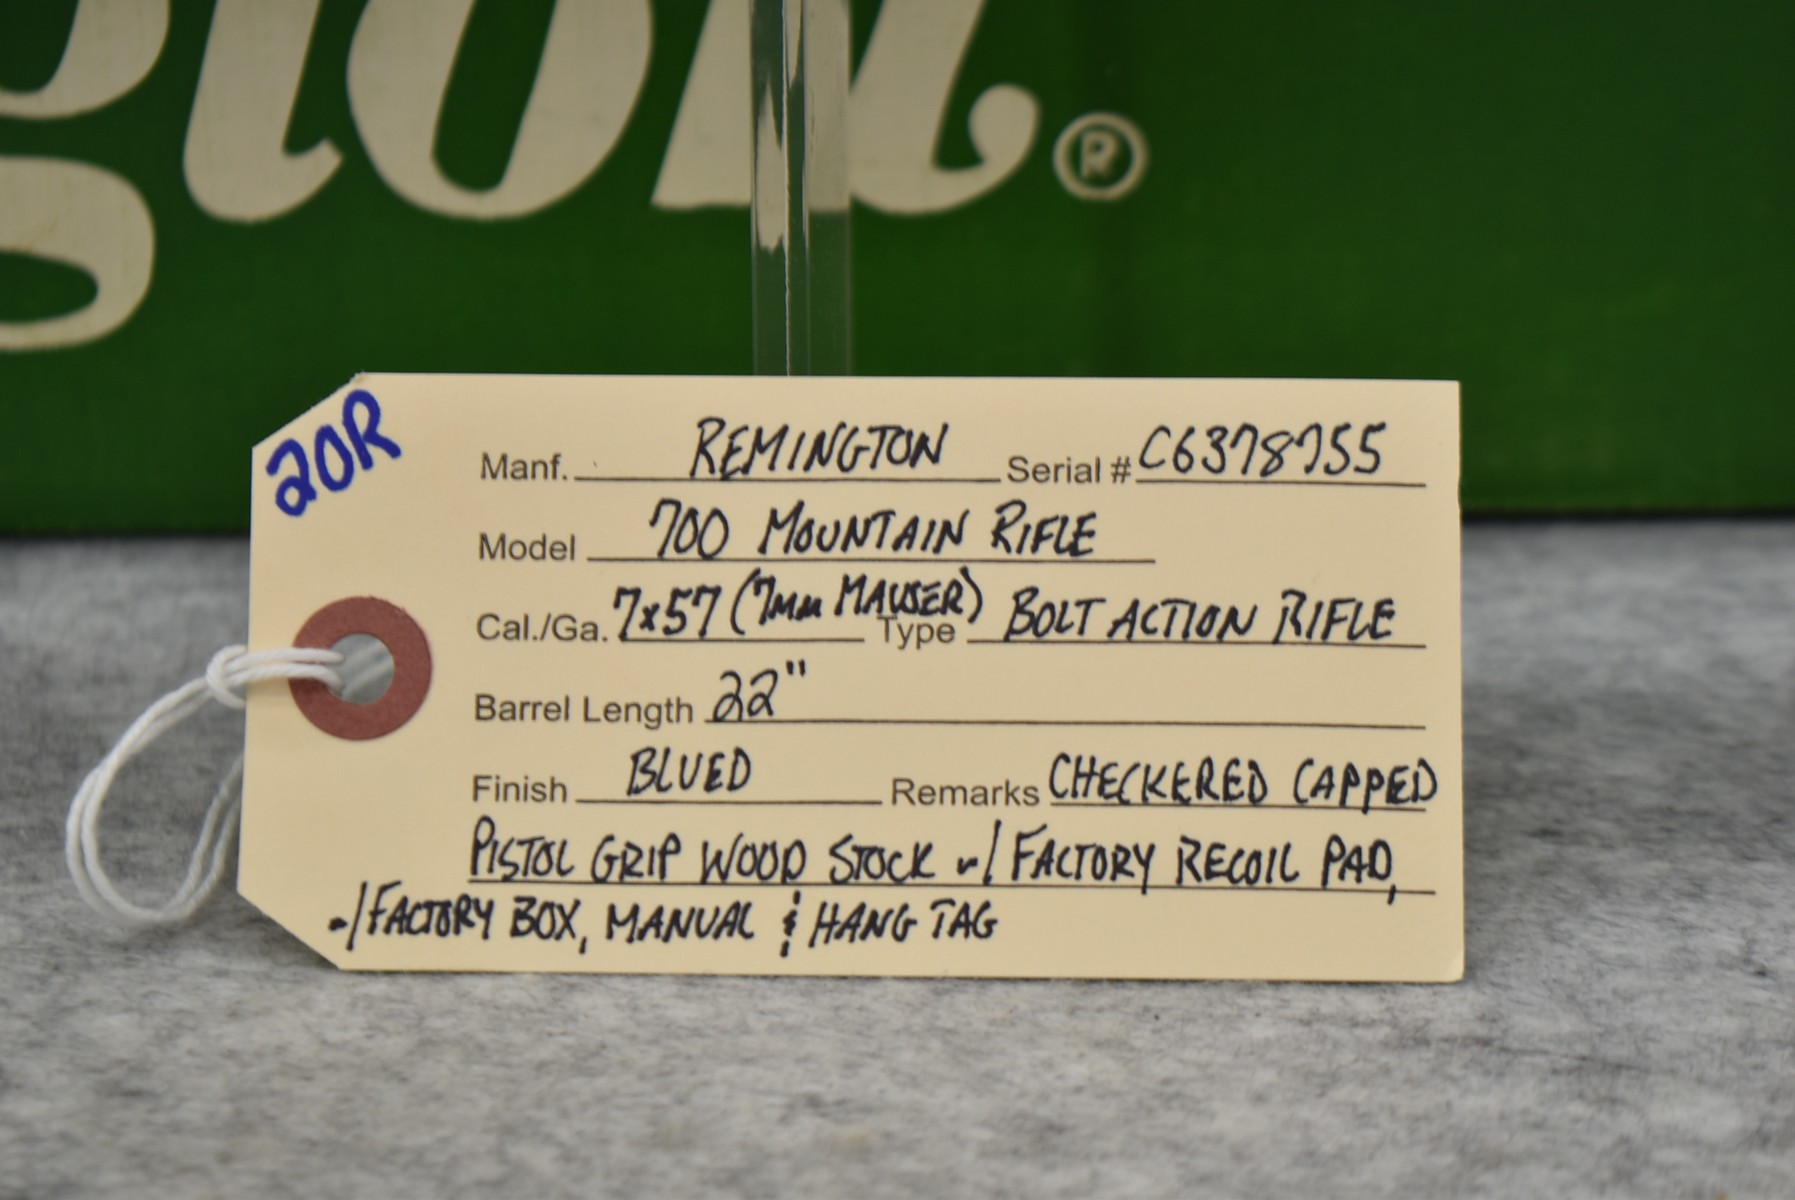 gton®
20R
Manf. REMINGTON Serial # C6378755
Model 700 MOUNTAIN RIFLE
Cal./Ga. 7x57 (7mm MAUSER) Type BOLT ACTION RIFLE
Barrel Length 22"
Finish BLUED Remarks CHECKERED CAPPED
PISTOL GRIP WOOD STOCK w/ FACTORY RECOIL PAD,
w/ FACTORY BOX, MANUAL & HANG TAG